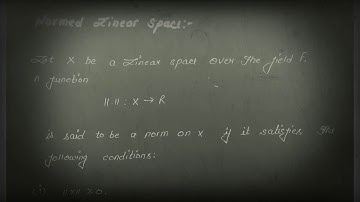 Normed Linear Space:-
Let X be a Linear space over the field F.
A function
||·|| : X → R
is said to be a norm on X if it satisfies the
following conditions:
(i) ||x|| ≥ 0.